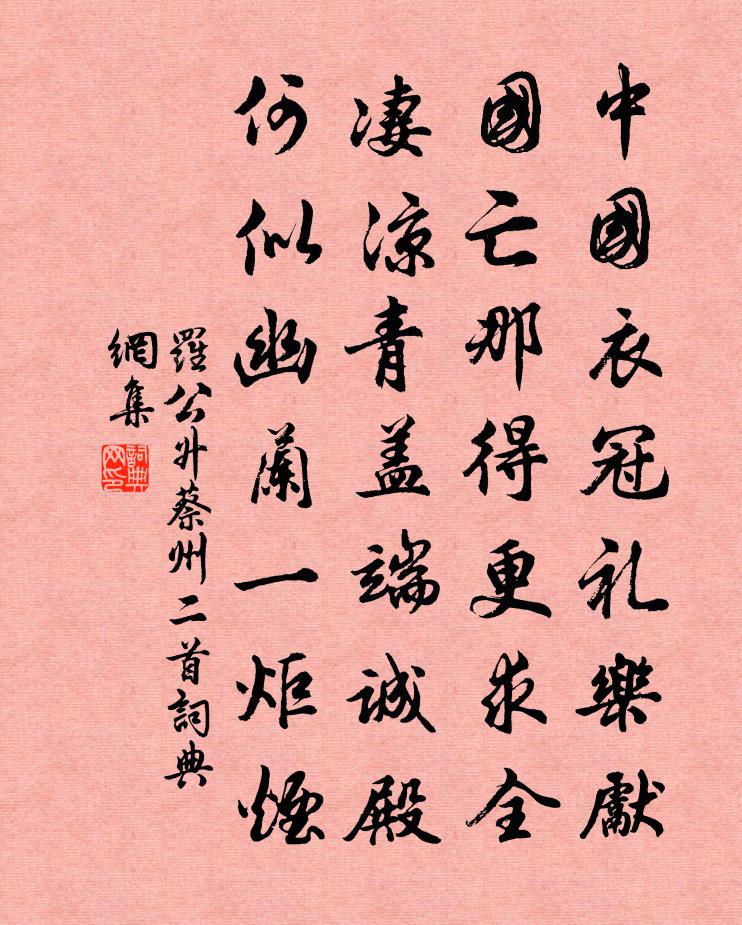 中國衣冠礼樂獻
國亡那得更求全
淒涼青盖端誠殿
何似幽蘭一炬煙
羅公升蔡州二首詞典
網集
詞典
网印